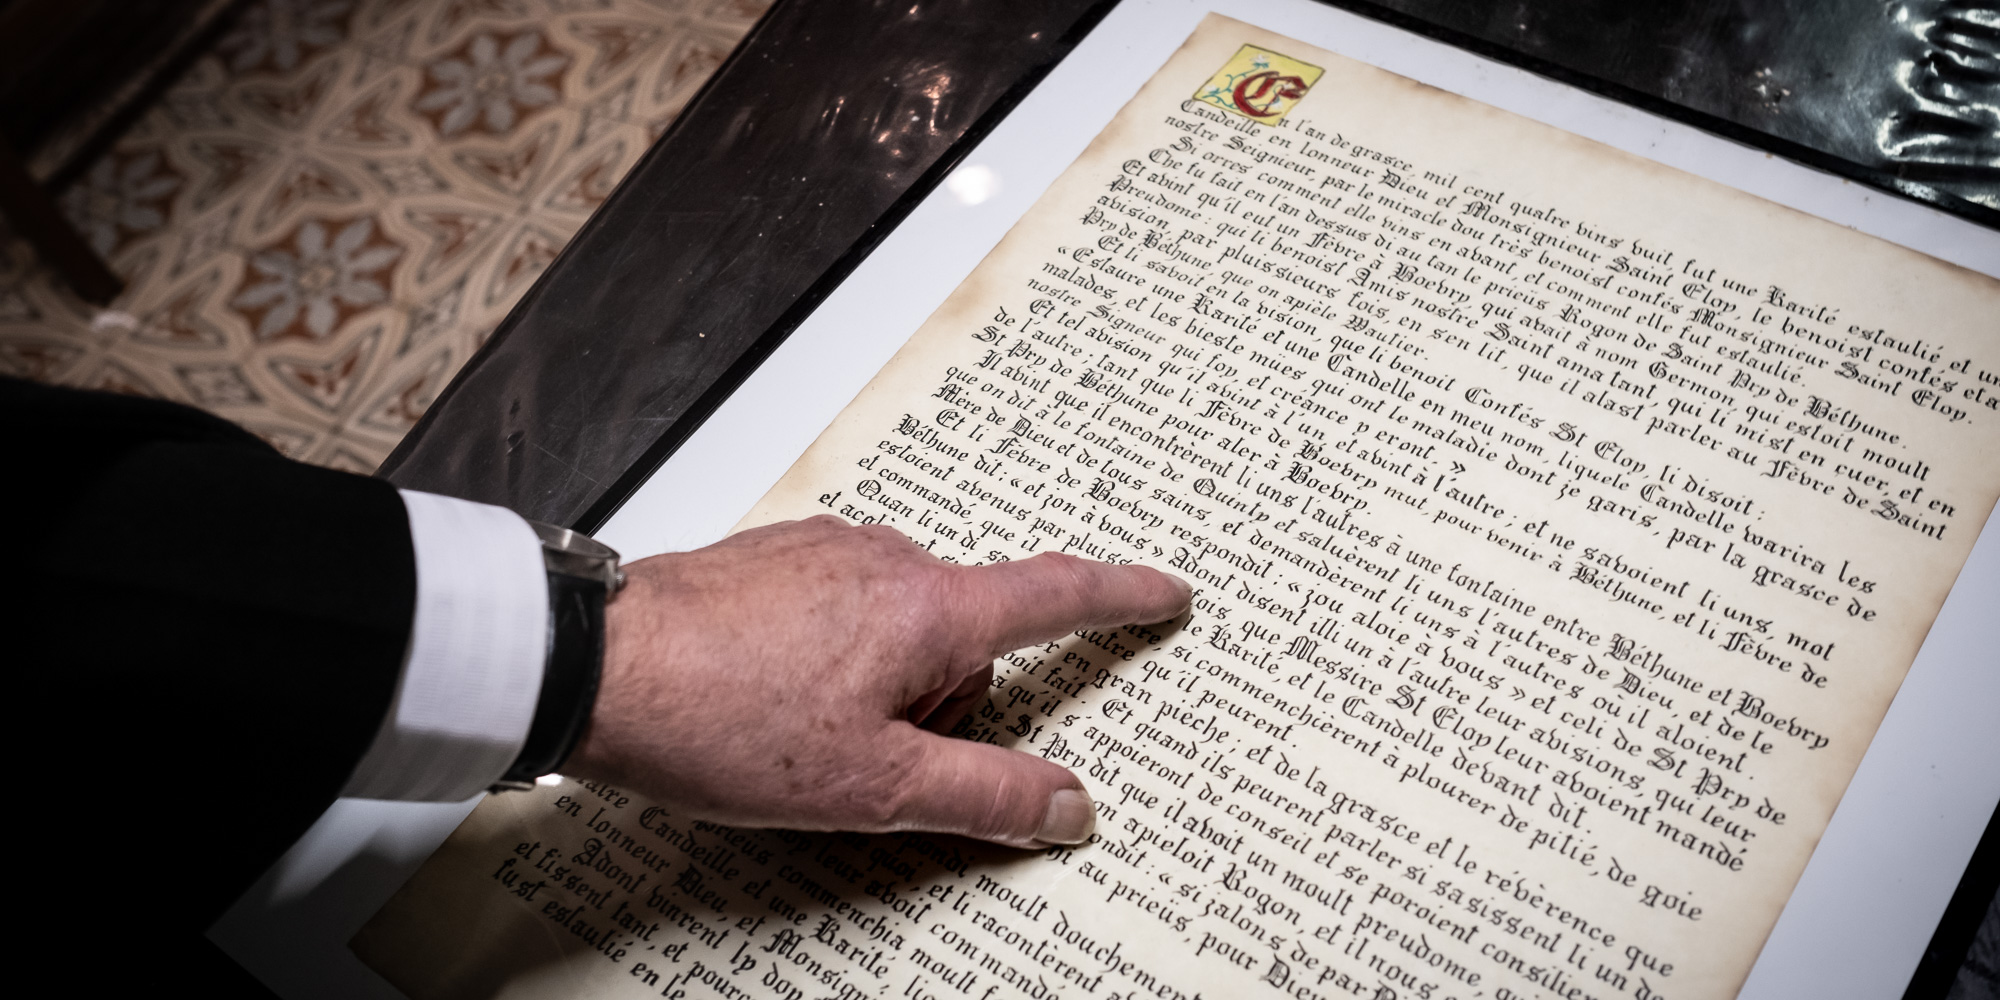 n l'an de grasce, mil cent quatre vins vuit, fut une Karité estaulié, et un
Candeille, en lonneur Dieu et Monsignieur Saint Eloy, le benoist confés et a
nostre Seignieur, par le miracle dou très benoist confés Monsignieur Saint Eloy.
Si orres comment elle vins en avant, et comment elle fut estaulié.
Che fu fait en l'an dessus di au tan le prieüs, Rogon de Saint Pry de Béthune.
Et avint qu'il eut un Fèvre à Boevry, qui avait à nom Germon, qui estoit moult
Preudome : qui li benoist Amis nostre Saint ama tant, qui li mist en cuer, et en
avision, par pluissieurs fois, en sen lit, que il alast parler au Fèvre de Saint
Pry de Béthune, que on apièle Wautier.
Et li savoit en la vision, que li benoit Confés St Eloy, li disoit :
« Estaure une Karité et une Candelle en meu nom, liquele Candelle warira les
malades, et les bieste mües, qui ont le maladie dont je garis, par la grasce de
nostre Signeur qui foy, et créance y eront. »
Et tel avision qu'il avint à l'un, et avint à l'autre ; et ne savoient li uns, mot
de l'autre ; tant que li Fèvre de Boevry mut, pour venir à Béthune, et li Fèvre de
St Pry de Béthune pour aler à Boevry.
Il avint que il encontrèrent li uns l'autres à une fontaine entre Béthune et Boevry
que on dit à le fontaine de Quinty et saluèrent li uns l'autres de Dieu, et de le
Mère de Dieu et de tous sains, et demandèrent li uns à l'autres où il aloient.
Et li Fèvre de Boevry respondit : « zou aloie à vous » et celi de St Pry de
Béthune dit : « et jon à vous » Adont disent illi un à l'autre leur avisions, qui leur
estocent avenus par pluissi fois que Messire St Eloy leur avoient mandé
et commandé, que il le Karité, et le Candelle devant dit.
Quan li un di sa , si commenchièrent à plourer de pitié, de goie
et acol autre qu'il peurent.
er en gran pièche ; et de la grasce et le révèrence que
oit fait. Et quand ils peurent parler si sasissent li un de
à qu'il s'appoieront de conseil et se poroient consilier
de St Pry dit que il avoit un moult preudome, qui
Béth on apieloit Rogon, et il nous
ondit : « si zalons de par
au prieüs, pour Dieu
pondi moult douchement
quoi, et li racontèrent
leur avoit commandé
prieüs commenchia moult
Candeille et une Karité,
en lonneur Dieu, et Monsign
Adont vinrent
et fissent tant, et pourc
fust estaulié en le